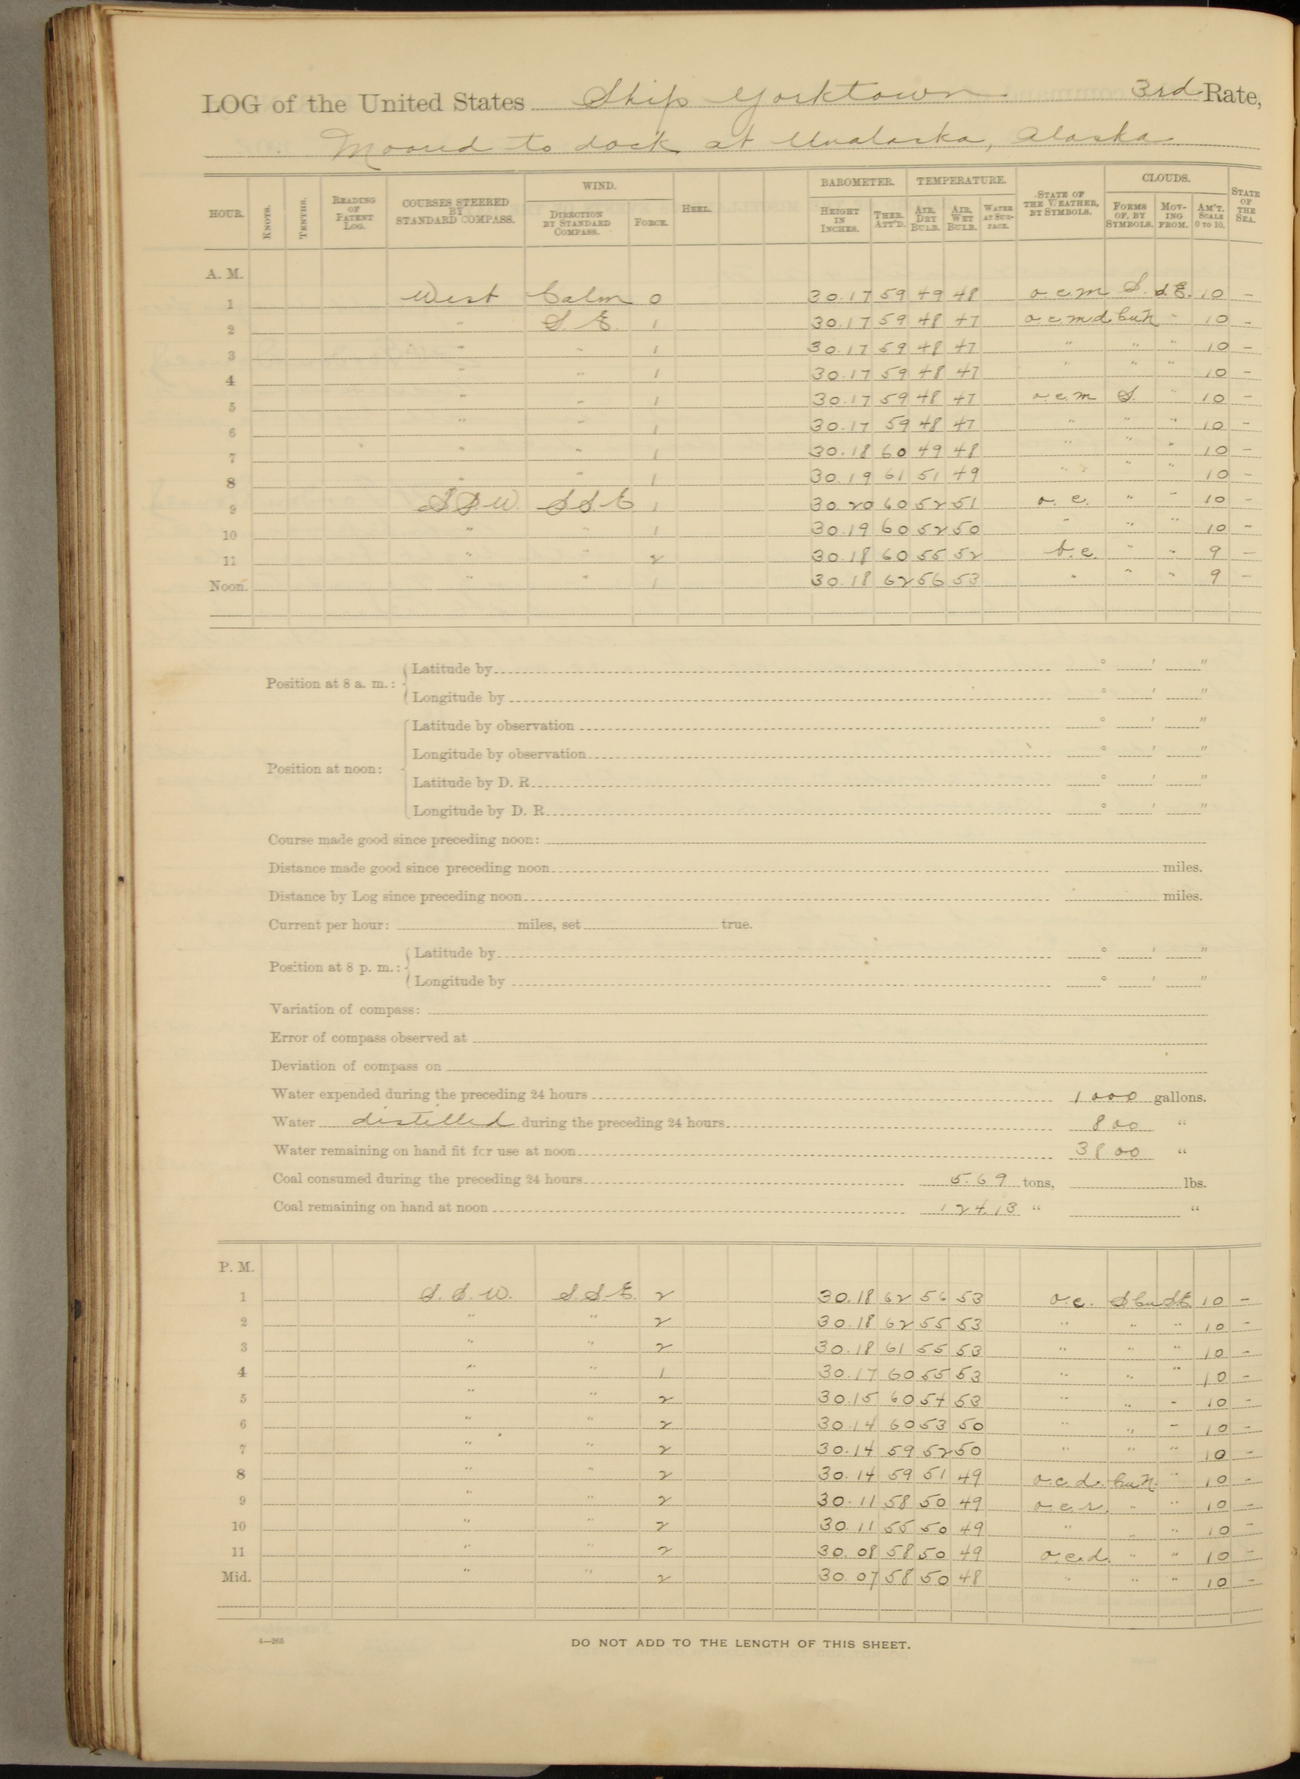 LOG of the United States Ship Yorktown. 3rd Rate,
Moored to dock at Unalaska, Alaska
HOUR. KNOTS. TENTHS. READING OF PATENT LOG. COURSES STEERED BY STANDARD COMPASS. WIND. DIRECTION BY STANDARD COMPASS. FORCE. HEEL. BAROMETER. HEIGHT IN INCHES. THER. ATT'D. TEMPERATURE. AIR, DRY BULB. AIR, WET BULB. WATER AT SURFACE. STATE OF THE WEATHER, BY SYMBOLS. CLOUDS. FORMS OF, BY SYMBOLS. MOVING FROM. AM'T. SCALE 0 TO 10. STATE OF THE SEA.
A. M.
1 West Calm 0 30.17 59 49 48 o.c.m S. S.E. 10 -
2 " S.E. 1 30.17 59 48 47 o.c.m.d. Cu.N " 10 -
3 " " 1 30.17 59 48 47 " " " 10 -
4 " " 1 30.17 59 48 47 " " " 10 -
5 " " 1 30.17 59 48 47 o.c.m S. " 10 -
6 " " 1 30.17 59 48 47 " " " 10 -
7 " " 1 30.18 60 49 48 " " " 10 -
8 " " 1 30.19 61 51 49 " " " 10 -
9 S.S.W. S.S.E 1 30.20 60 52 51 o.c. " " 10 -
10 " " 1 30.19 60 52 50 " " " 10 -
11 " " 2 30.18 60 55 52 b.c. " " 9 -
Noon. " " 1 30.18 62 56 53 " " " 9 -
Position at 8 a. m.: Latitude by ° ' "
Longitude by ° ' "
Position at noon: Latitude by observation ° ' "
Longitude by observation ° ' "
Latitude by D. R. ° ' "
Longitude by D. R. ° ' "
Course made good since preceding noon:
Distance made good since preceding noon miles.
Distance by Log since preceding noon miles.
Current per hour: miles, set true.
Position at 8 p. m.: Latitude by ° ' "
Longitude by ° ' "
Variation of compass:
Error of compass observed at
Deviation of compass on
Water expended during the preceding 24 hours 1000 gallons.
Water distilled during the preceding 24 hours 800 "
Water remaining on hand fit for use at noon 3800 "
Coal consumed during the preceding 24 hours 5.69 tons, lbs.
Coal remaining on hand at noon 124.13 " "
P. M.
1 S.S.W. S.S.E. 2 30.18 62 56 53 o.c. S.Cu S.E. 10 -
2 " " 2 30.18 62 55 53 " " " 10 -
3 " " 2 30.18 61 55 53 " " " 10 -
4 " " 1 30.17 60 55 53 " " " 10 -
5 " " 2 30.15 60 54 53 " " " 10 -
6 " " 2 30.14 60 53 50 " " " 10 -
7 " " 2 30.14 59 52 50 " " " 10 -
8 " " 2 30.14 59 51 49 o.c.d. Cu.N. " 10 -
9 " " 2 30.11 58 50 49 o.c.r. " " 10 -
10 " " 2 30.11 55 50 49 " " " 10 -
11 " " 2 30.08 58 50 49 o.c.d. " " 10 -
Mid. " " 2 30.07 58 50 48 " " " 10 -
4—265
DO NOT ADD TO THE LENGTH OF THIS SHEET.